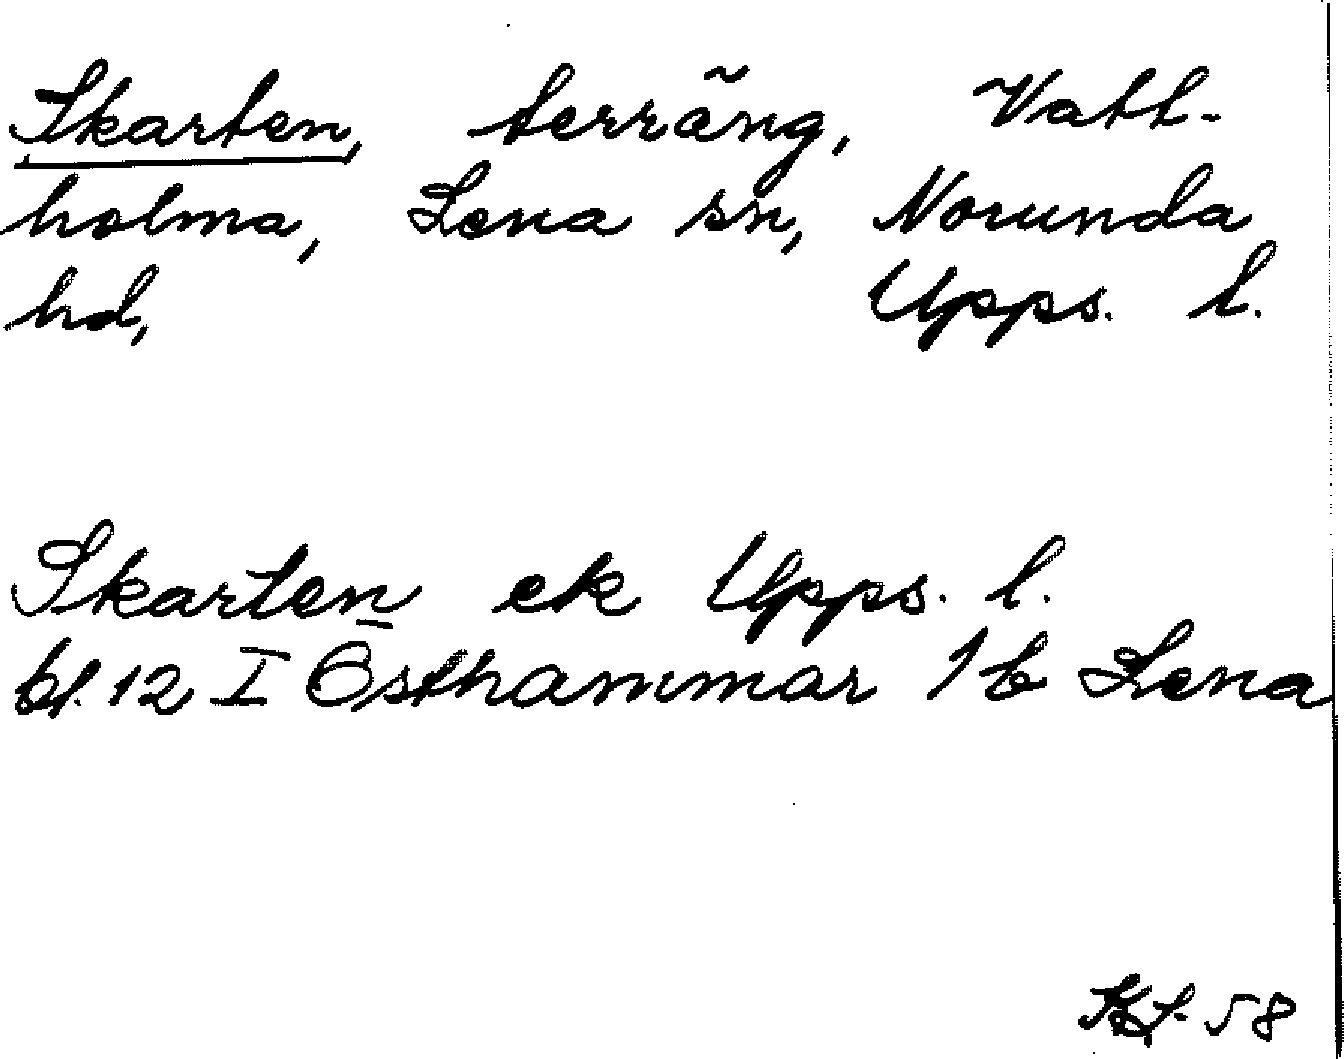 Skarten, terräng, Vatt-
holma, Lena sn, Norunda
hd, Upps. l.
Skarten ek Upps. l.
bl. 12 I Östhammar 1b Lena
58